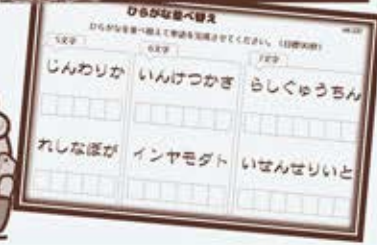 ひらがな並べ替え
ひらがなを並べ替えて単語を完成させてください。(目標90秒)
5文字
6文字
7文字
じんわりか
いんけつかぎ
らしぐゅうちん
れしなぼが
インヤモダト
いせんせりいと